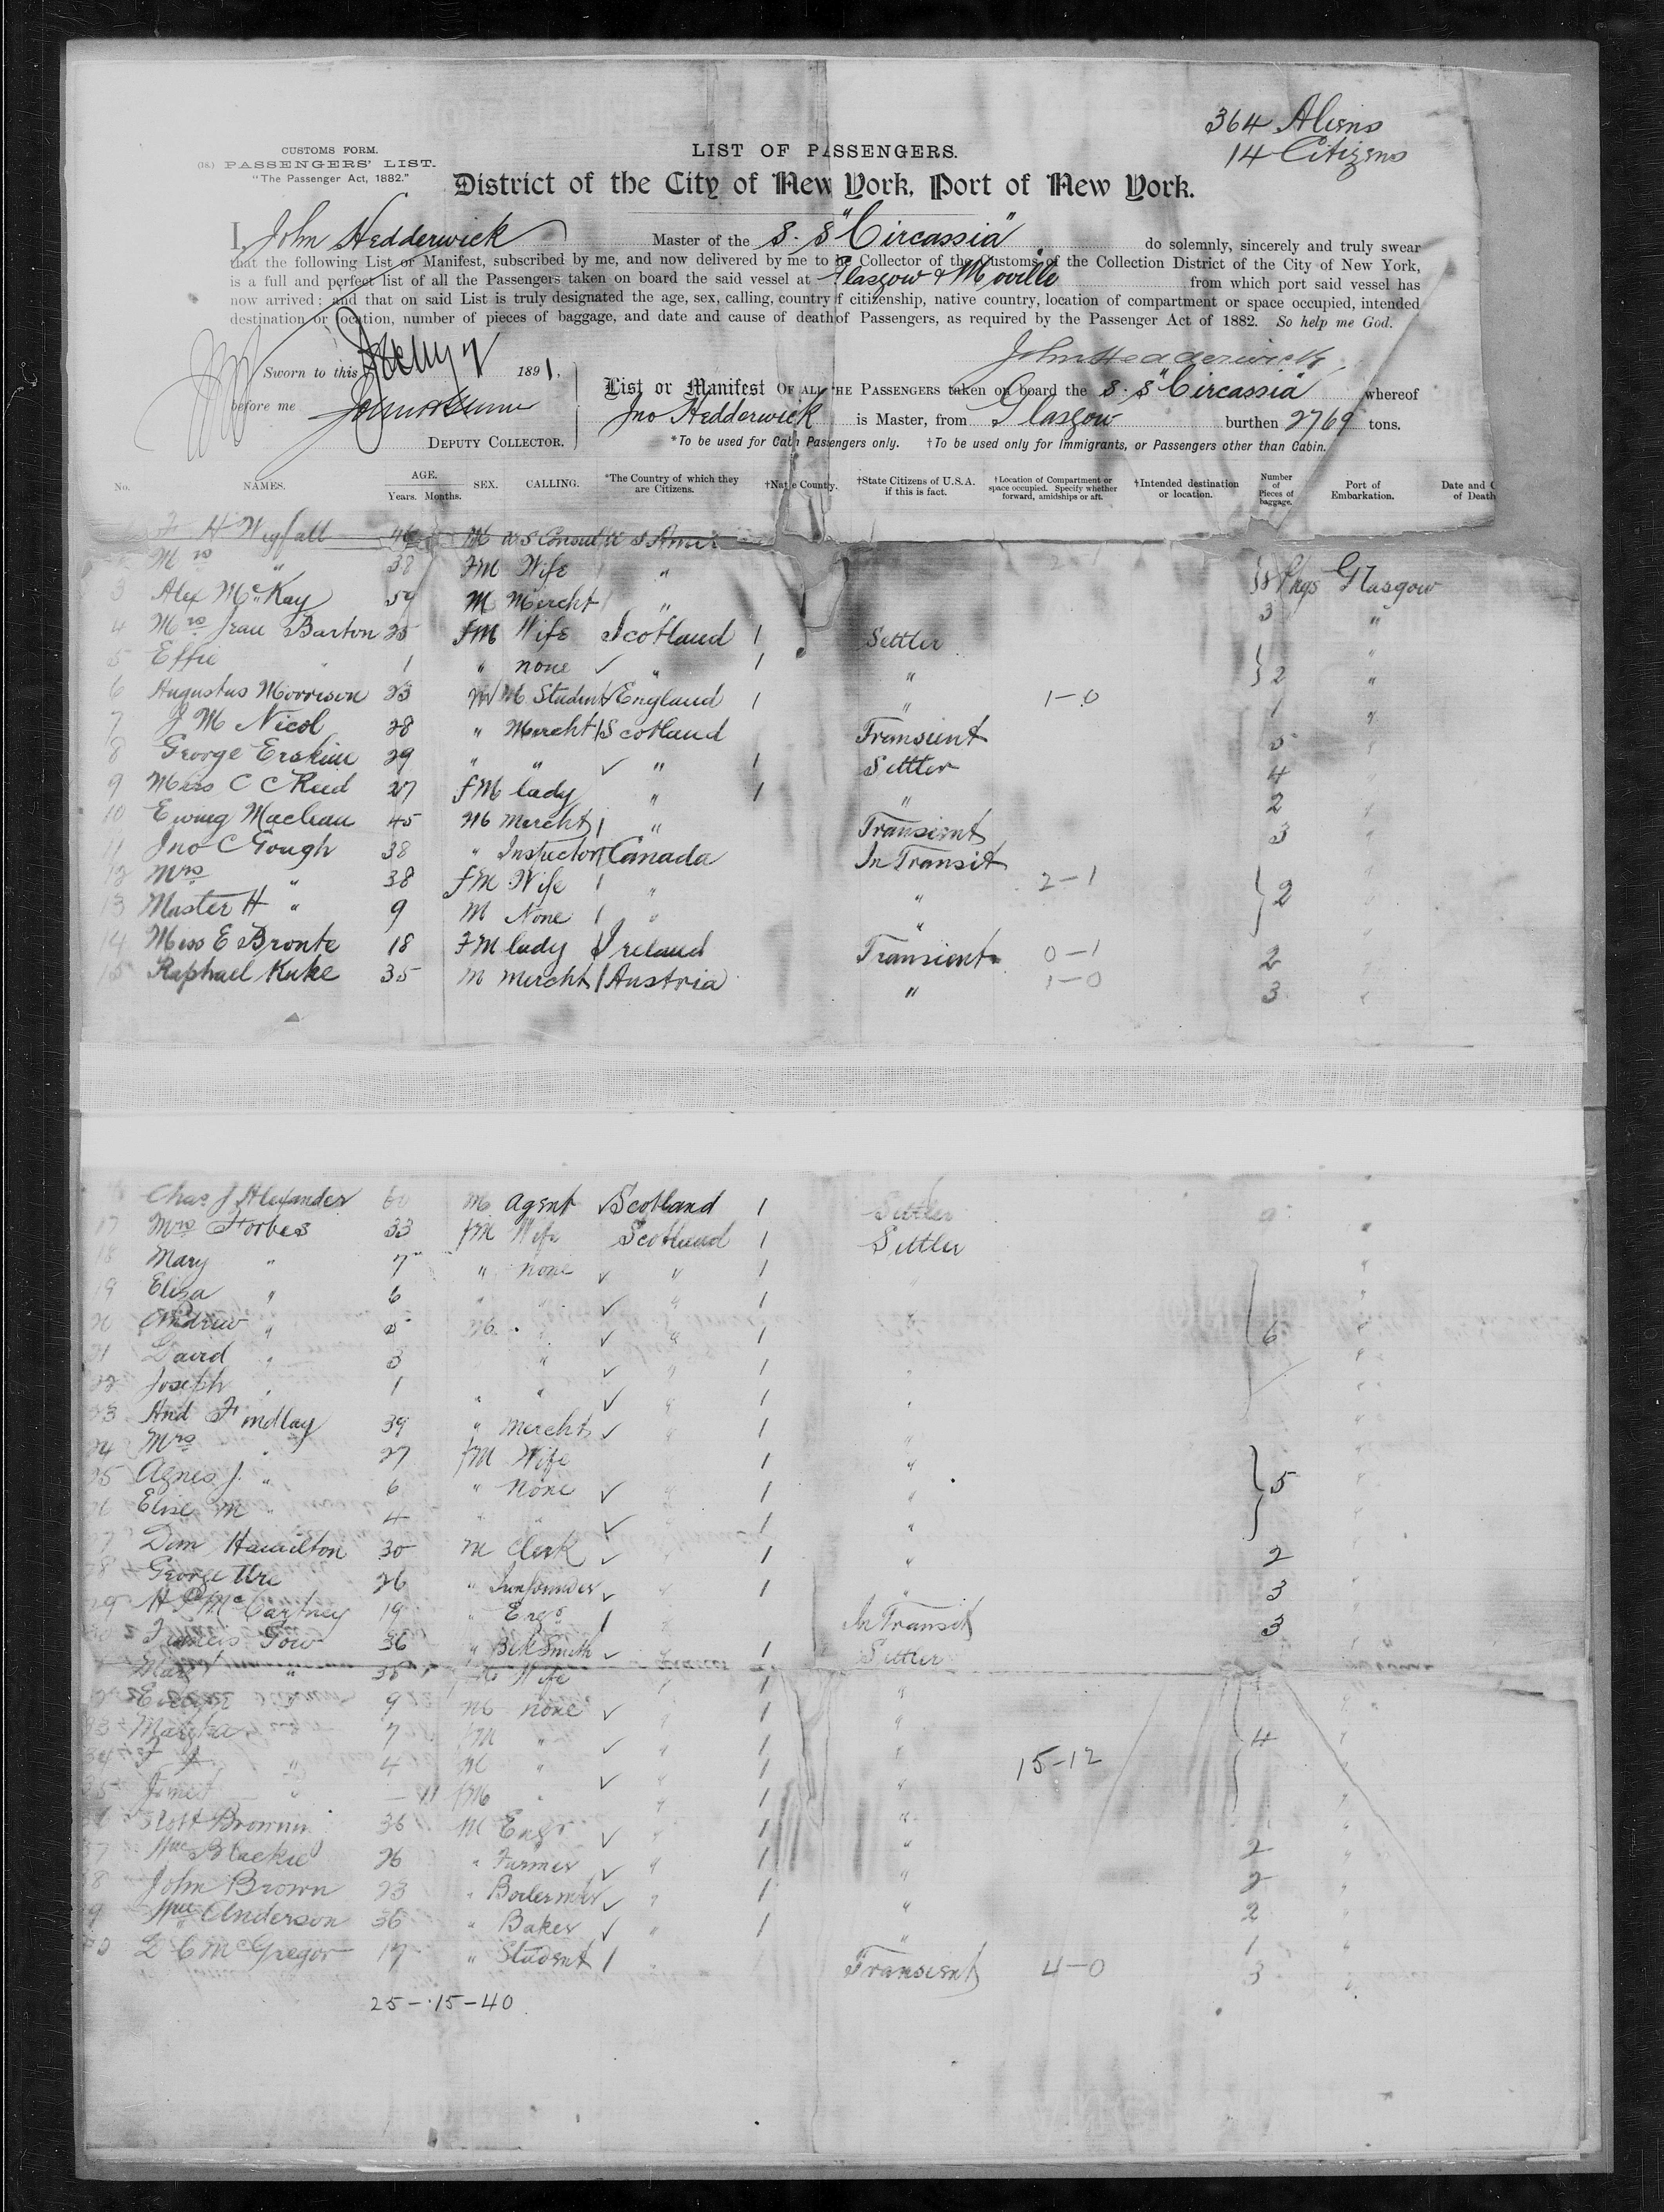 364 Aliens
14 Citizens
CUSTOMS FORM.
(18.) PASSENGERS' LIST.
"The Passenger Act, 1882."
LIST OF PASSENGERS.
District of the City of New York, Port of New York.
I, John Hedderwick Master of the S. S "Circassia" do solemnly, sincerely and truly swear
that the following List or Manifest, subscribed by me, and now delivered by me to the Collector of the Customs of the Collection District of the City of New York,
is a full and perfect list of all the Passengers taken on board the said vessel at Glasgow & Moville from which port said vessel has
now arrived; and that on said List is truly designated the age, sex, calling, country of citizenship, native country, location of compartment or space occupied, intended
destination or location, number of pieces of baggage, and date and cause of death of Passengers, as required by the Passenger Act of 1882. So help me God.
John Hedderwick
Sworn to this 7 1891,
before me
DEPUTY COLLECTOR.
List or Manifest OF ALL THE PASSENGERS taken on board the S. S "Circassia" whereof
Jno Hedderwick is Master, from Glasgow burthen 2769 tons.
*To be used for Cabin Passengers only. †To be used only for Immigrants, or Passengers other than Cabin.
No. NAMES. AGE. Years. Months. SEX. CALLING. *The Country of which they are Citizens. †Native Country. †State Citizens of U.S.A. if this is fact. †Location of Compartment or space occupied. Specify whether forward, amidships or aft. †Intended destination or location. Number of Pieces of baggage. Port of Embarkation. Date and C of Death
H Wigfall 46 M U S Consul U S Amer
Mrs " 38 FM Wife "
3 Alex McKay 59 M Mercht " 8 Pkgs Glasgow
4 Mrs Jean Barton 25 FM Wife Scotland 1 Settler 3 "
5 Effie " 1 " none ✓ " 1 " 2 "
6 Augustus Morrison 23 M Student ✓ England 1 " 1-0 1 "
7 J M Nicol 28 " Mercht 1 Scotland Transient 5 "
8 George Erskine 29 " " ✓ " 1 Settler 4 "
9 Miss C C Reid 27 FM lady " 1 " 2 "
10 Ewing Maclean 45 M Mercht 1 " Transient 3 "
11 Jno C Gough 38 " Inspector 1 Canada In Transit
12 Mrs " 38 FM Wife 1 " " 2-1 2
13 Master H " 9 M None 1 " "
14 Miss E Bronte 18 FM lady 1 Ireland Transient 0-1 2
15 Raphael Kuke 35 M Mercht 1 Austria " 1-0 3
Chas J Alexander M Agent ✓ Scotland 1 Settler
17 Mrs Forbes 33 FM Wife Scotland 1 Settler
18 Mary " 7 " none ✓ " 1
19 Eliza " 6 ✓ " 1
20 Andrew " 5 M ✓ " 1 6
21 David " 3 " ✓ " 1
22 Joseph " 1 " " ✓ " 1
23 And Findlay 39 " Mercht ✓ " 1 "
24 Mrs " 27 FM Wife 1 "
25 Agnes J. " 6 " None ✓ " 1 " 5
26 Elise M " 4 ✓ 1 "
27 Hamilton 30 M Clerk ✓ 1 " 2
28 George Ure 26 " Ironfounder ✓ 1 " 3
29 McCartney 19 " Engr 1 In Transit 3
Francis Gow 36 " Blk Smith ✓ 1 Settler
Mary " 35 Wife 1 "
9 M none ✓ 1 "
33 7 FM " ✓ 1 " 4
34 " 4 M " ✓ 1 " 15-12
35 " 11 FM 1
Scott Brown 36 M Engr ✓ 1 " 2
37 Wm Blackie 26 " Farmer ✓ " 1 " 2
38 John Brown 23 " Boilermkr ✓ " 1 " 2
39 Wm Anderson 36 " Baker ✓ " 1 " 1
40 D C McGregor 17 " Student 1 " Transient 4-0 3
25-15-40